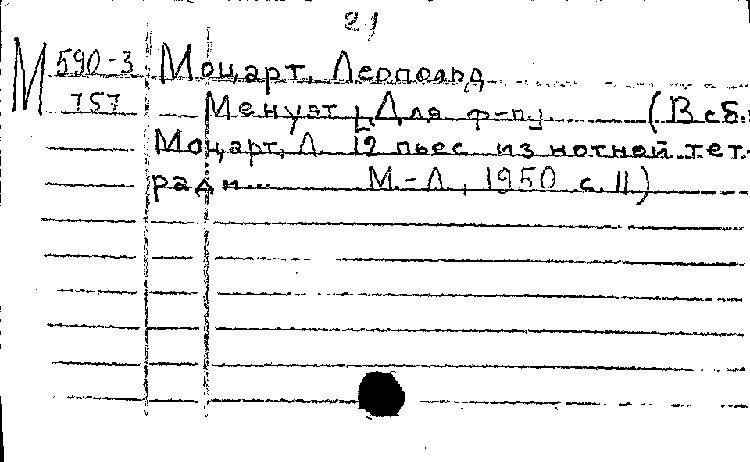 21
М 590-3 Моцарт, Леопольд
757 Менуэт [Для ф-п] (В сб.:
Моцарт, Л. 12 пьес из нотной тет-
ради... М.-Л., 1950 с. 11)